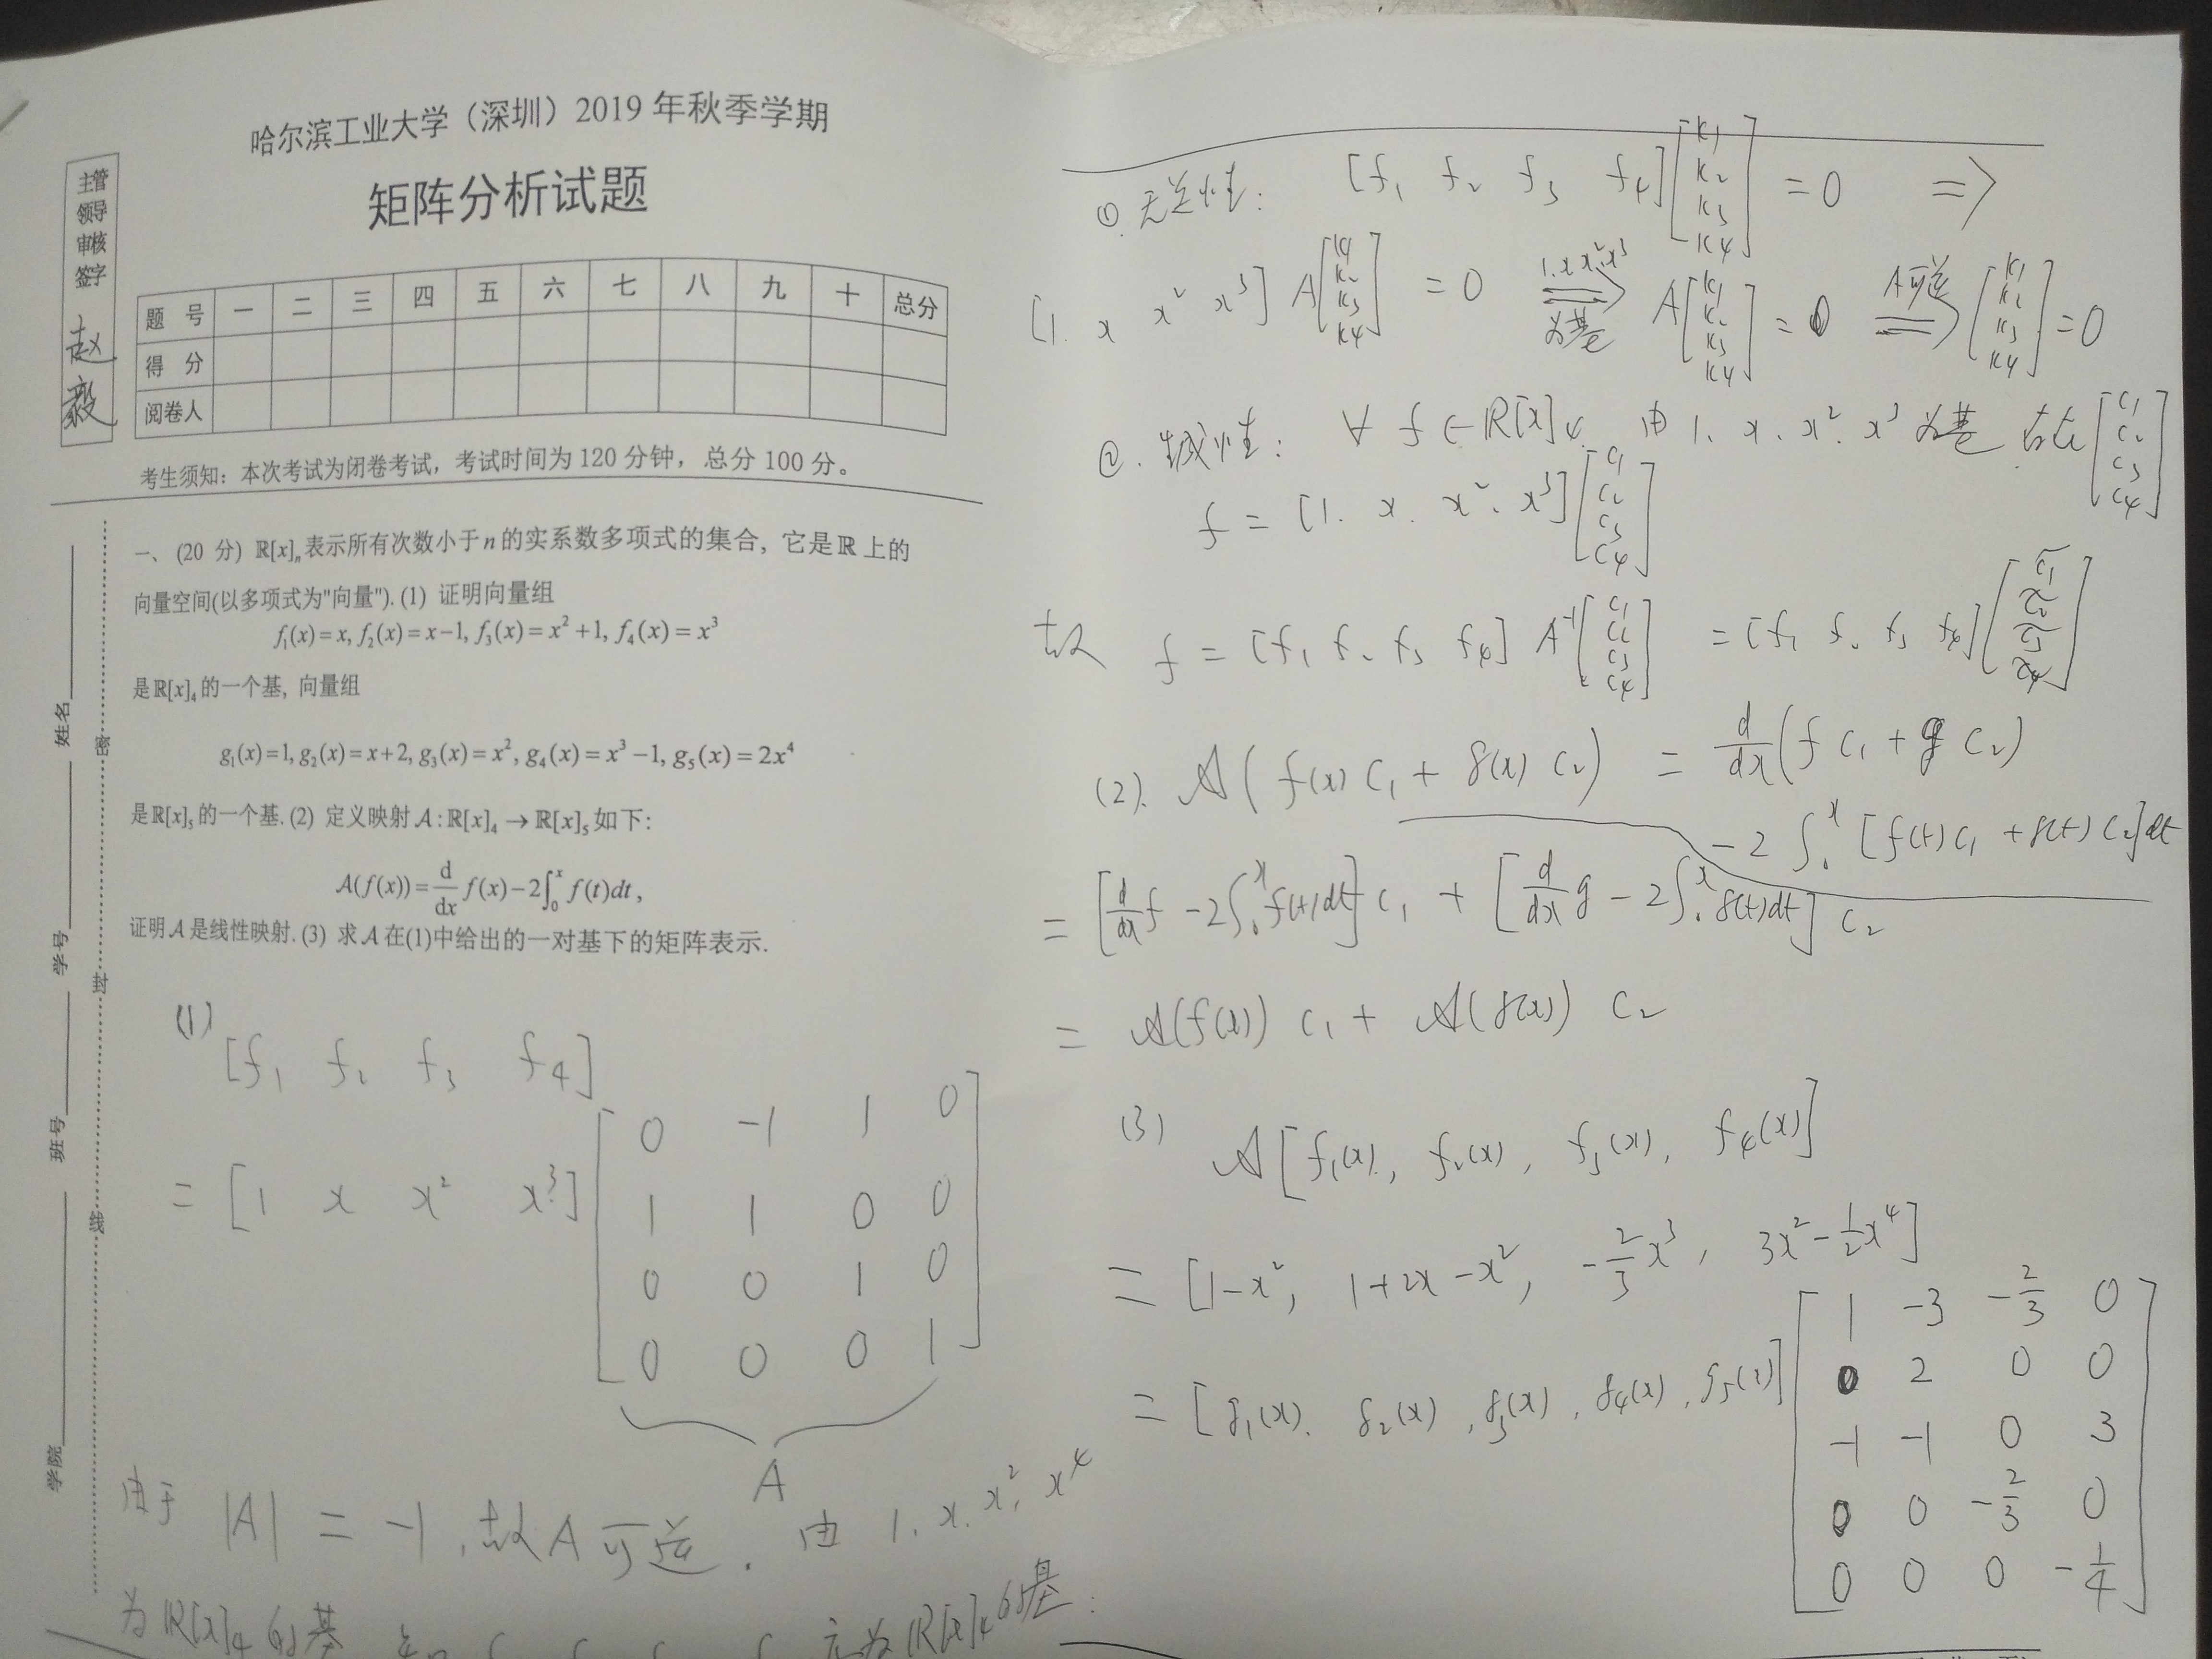 哈尔滨工业大学（深圳）2019 年秋季学期
矩阵分析试题
主管
领导
审核
签字
赵
毅
题 号 一 二 三 四 五 六 七 八 九 十 总分
得 分
阅卷人
考生须知：本次考试为闭卷考试，考试时间为 120 分钟，总分 100 分。
姓名
学号
班号
学院
密
封
线
一、(20 分) ℝ[x]ₙ 表示所有次数小于 n 的实系数多项式的集合, 它是 ℝ 上的
向量空间(以多项式为"向量"). (1) 证明向量组
f₁(x)=x, f₂(x)=x−1, f₃(x)=x²+1, f₄(x)=x³
是 ℝ[x]₄ 的一个基, 向量组
g₁(x)=1, g₂(x)=x+2, g₃(x)=x², g₄(x)=x³−1, g₅(x)=2x⁴
是 ℝ[x]₅ 的一个基. (2) 定义映射 A:ℝ[x]₄→ℝ[x]₅ 如下:
A(f(x))=d/dx f(x)−2∫₀ˣ f(t)dt,
证明 A 是线性映射. (3) 求 A 在(1)中给出的一对基下的矩阵表示.
(1)
[f₁ f₂ f₃ f₄]
= [1 x x² x³]
0 −1 1 0
1 1 0 0
0 0 1 0
0 0 0 1
A
由于 |A| = −1, 故A可逆. 由 1. x. x², x⁴
为 ℝ[x]₄ 的基 亦为 ℝ[x]₄ 的基:
①. 无关性: [f₁ f₂ f₃ f₄] [k₁ k₂ k₃ k₄] = 0 ⇒
[1. x x² x³] A [k₁ k₂ k₃ k₄] = 0 1. x x² x³ 为基 ⇒ A [k₁ k₂ k₃ k₄] = 0 A可逆 ⇒ [k₁ k₂ k₃ k₄] = 0
②. 生成性: ∀ f ∈ ℝ[x]₄ 由 1. x. x². x³ 为基 存在 [c₁ c₂ c₃ c₄]
f = [1. x. x². x³] [c₁ c₂ c₃ c₄]
故 f = [f₁ f₂ f₃ f₄] A⁻¹ [c₁ c₂ c₃ c₄] = [f₁ f₂ f₃ f₄] [c̃₁ c̃₂ c̃₃ c̃₄]
(2). A(f(x) c₁ + g(x) c₂) = d/dx (f c₁ + g c₂)
−2 ∫₀ˣ [f(t) c₁ + g(t) c₂] dt
= [d/dx f −2∫₀ˣ f(t)dt] c₁ + [d/dx g − 2∫₀ˣ g(t)dt] c₂
= A(f(x)) c₁ + A(g(x)) c₂
(3) A[f₁(x), f₂(x), f₃(x), f₄(x)]
= [1−x², 1+2x−x², −2/3 x³, 3x²−1/2 x⁴]
= [g₁(x). g₂(x), g₃(x), g₄(x), g₅(x)]
1 −3 −2/3 0
0 2 0 0
−1 −1 0 3
0 0 −2/3 0
0 0 0 −1/4